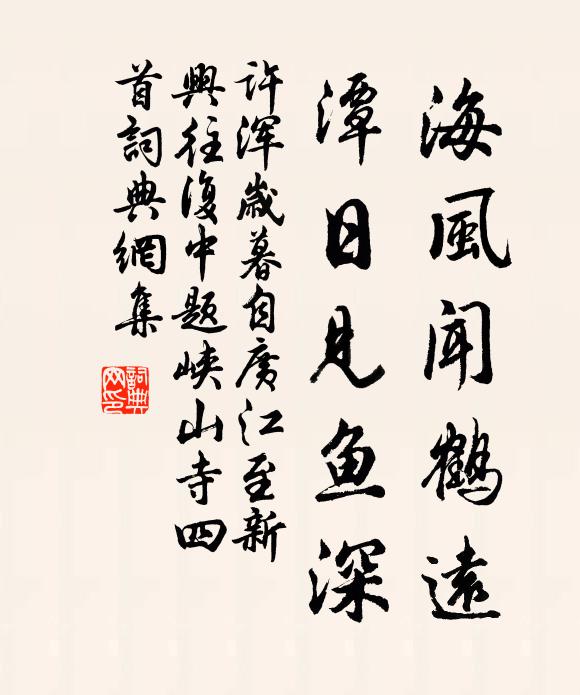 海風聞鶴遠
潭日見鱼深
许浑歲暮自廣江至新
興往復中題峡山寺四
首詞典網集
詞典
网印